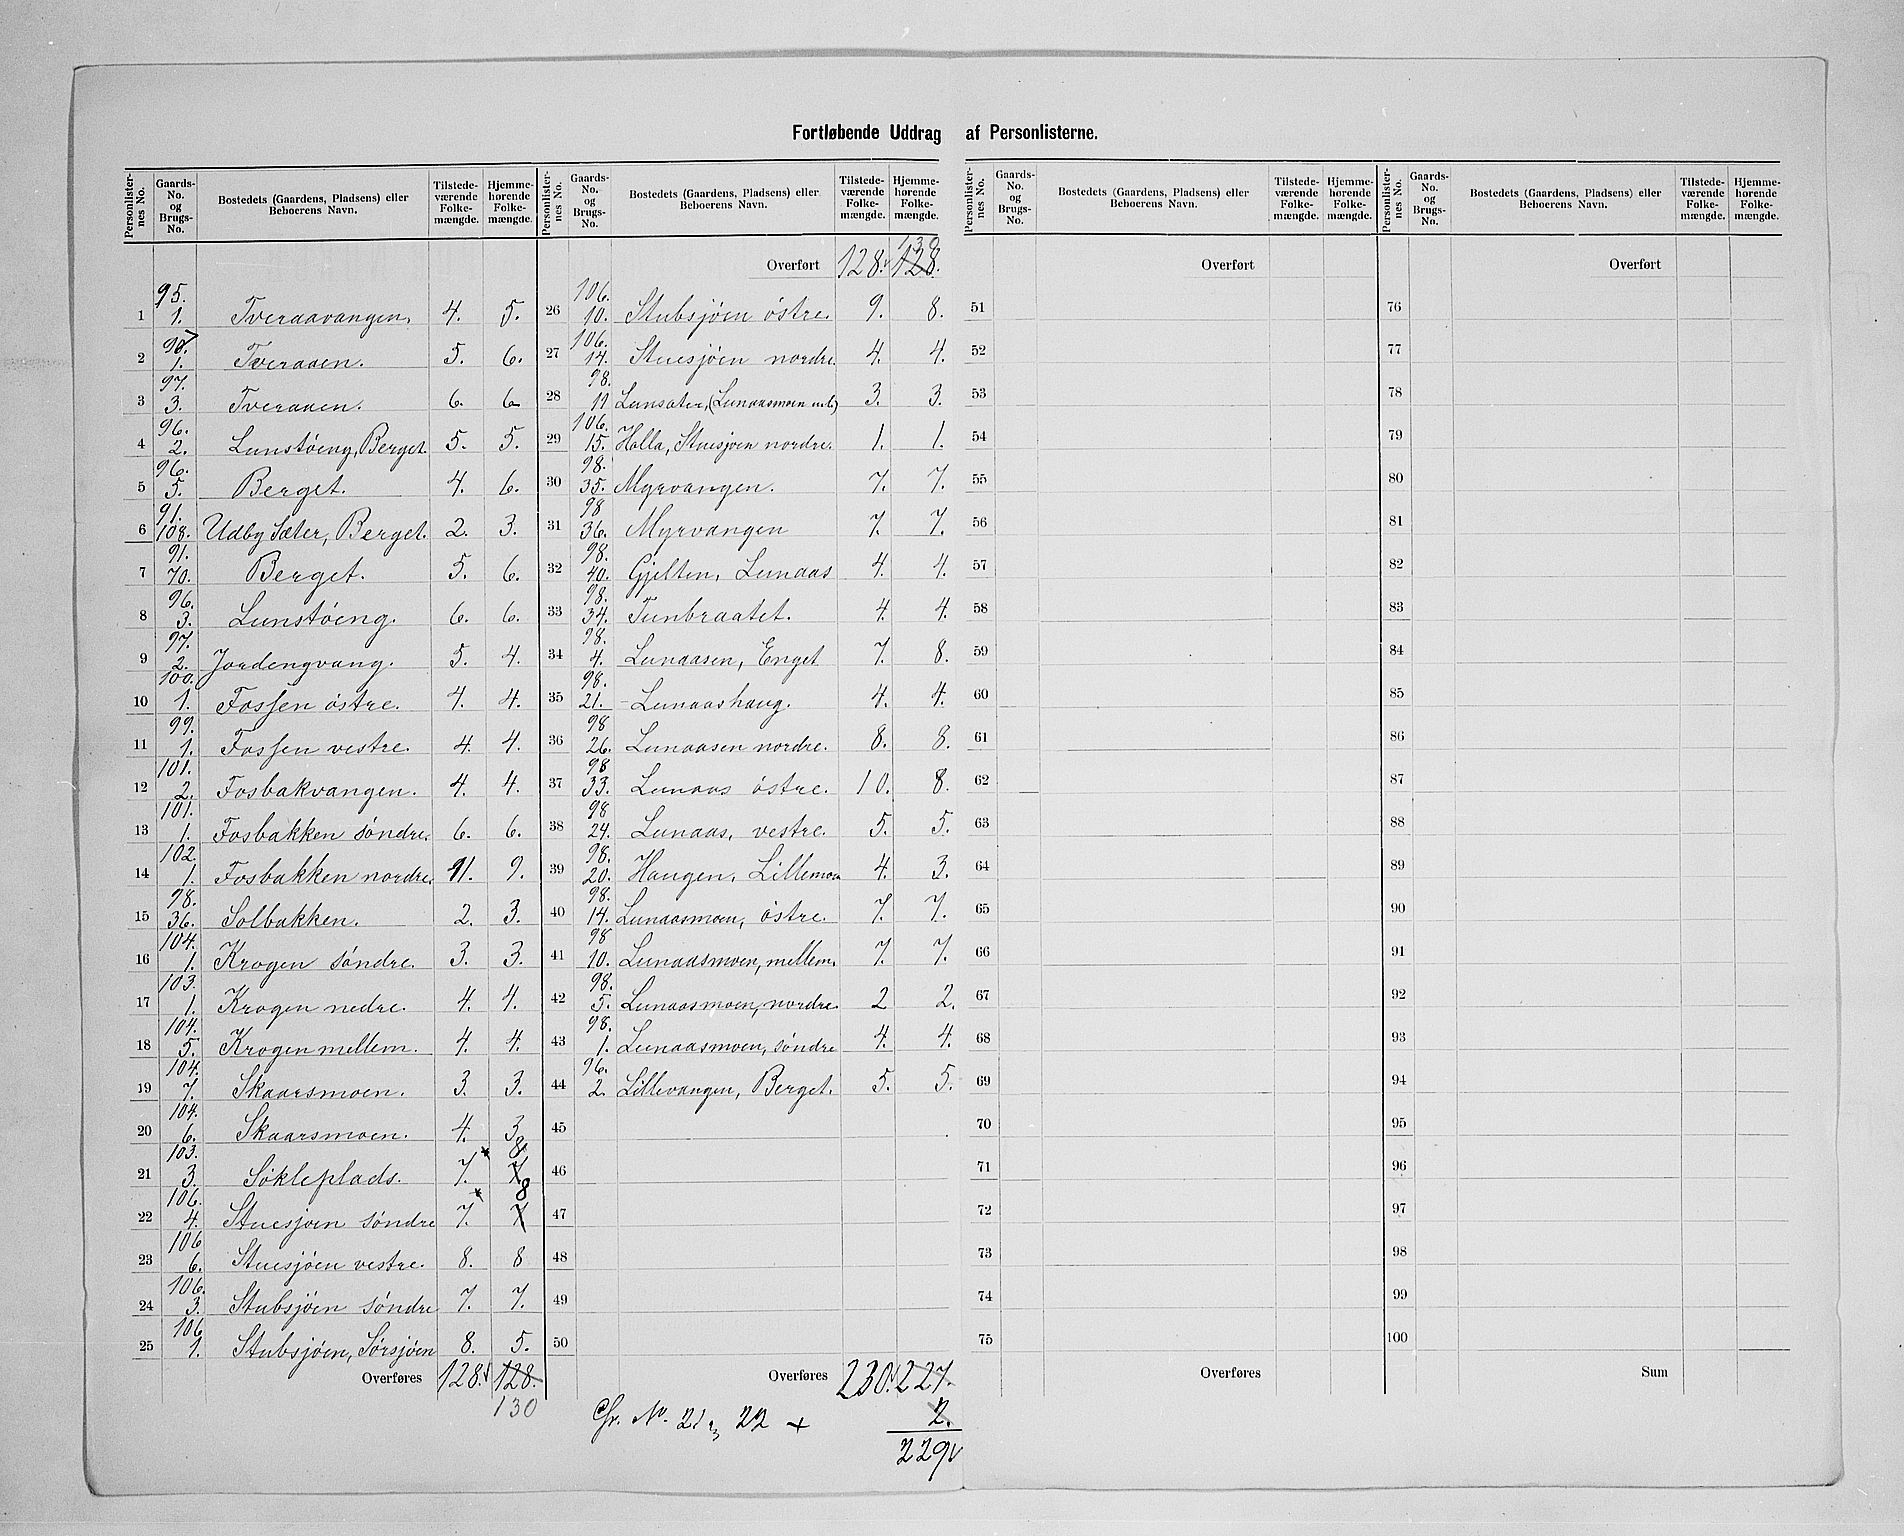 Fortløbende Uddrag af Personlisterne.
Personlister-nes No. | Gaards-No. og Brugs-No. | Bostedets (Gaardens, Pladsens) eller Beboerens Navn. | Tilstede-værende Folke-mængde. | Hjemme-hørende Folke-mængde.
1 95. 1. Tveraavangen. 4. 5.
2 97. 1. Tveraaen. 5. 6.
3 97. 3. Tveraaen. 6. 6
4 96. 2. Lunstøeng, Berget. 5. 5.
5 96. 5. Berget. 4. 6.
6 91. 108. Udby Sæter, Berget. 2. 3.
7 91. 70. Berget. 5. 6.
8 96. 3. Lunstøeng. 6. 6.
9 97. 2. Jordengvang. 5. 4.
10 100. 1. Fossen østre. 4. 4.
11 99. 1. Fossen vestre. 4. 4.
12 101. 2. Fosbakvangen. 4. 4.
13 101. 1. Fosbakken søndre. 6. 6.
14 102. 1. Fosbakken nordre. 11. 9.
15 98. 36. Solbakken. 2. 3.
16 104. 1. Krogen søndre. 3. 3.
17 103. 1. Krogen nedre. 4. 4.
18 104. 5. Krogen mellem. 4. 4.
19 104. 7. Skaarsmoen. 3. 3.
20 104. 6. Skaarsmoen. 4. 3
21 103. 3. Søkleplads. 7. × 7 8
22 106. 4. Stuesjøen søndre 7. × 7 8
23 106 6. Stuesjøen vestre. 8. 8
24 106. 3. Stubsjøen søndre 7. 7.
25 106 1. Stubsjøen, Sørsjøen 8. 5.
Overføres 128. 128.
130
Personlister-nes No. | Gaards-No. og Brugs-No. | Bostedets (Gaardens, Pladsens) eller Beboerens Navn. | Tilstede-værende Folke-mængde. | Hjemme-hørende Folke-mængde.
Overført 128. 128. 130
26 106. 10. Stubsjøen østre. 9. 8.
27 106. 14. Stuesjøen nordre. 4. 4.
28 98. 11 Lunsæter, (Lunaasmoen 3. 3.
29 106. 15. Holla, Stuesjøen nordre. 1. 1.
30 98. 35. Myrvangen. 7. 7.
31 98 36. Myrvangen 7. 7.
32 98. 40. Gjelten, Lunaas 4. 4.
33 98. 34. Tunbraatet. 4. 4.
34 98. 4. Lunaasen, Enget 7. 8.
35 98. 21. Lunaashaug. 4. 4.
36 98 26. Lunaasen nordre. 8. 8.
37 98 33. Lunaas østre. 10. 8.
38 98 24. Lunaas, vestre. 5. 5.
39 98. 20. Haugen, Lillemoen 4. 3.
40 98. 14. Lunaasmoen, østre. 7. 7.
41 98 10. Lunaasmoen, mellem. 7. 7.
42 98. 5. Lunaasmoen, nordre. 2 2.
43 98. 1. Lunaasmoen, søndre 4. 4.
44 96. 2. Lillevangen, Berget. 5. 5.
45
46
47
48
49
50
Overføres 230. 227.
Cfr. No. 21 22 + 2.
229
Personlister-nes No. | Gaards-No. og Brugs-No. | Bostedets (Gaardens, Pladsens) eller Beboerens Navn. | Tilstede-værende Folke-mængde. | Hjemme-hørende Folke-mængde.
Overført
51
52
53
54
55
56
57
58
59
60
61
62
63
64
65
66
67
68
69
70
71
72
73
74
75
Overføres
Personlister-nes No. | Gaards-No. og Brugs-No. | Bostedets (Gaardens, Pladsens) eller Beboerens Navn. | Tilstede-værende Folke-mængde. | Hjemme-hørende Folke-mængde.
Overført
76
77
78
79
80
81
82
83
84
85
86
87
88
89
90
91
92
93
94
95
96
97
98
99
100
Sum